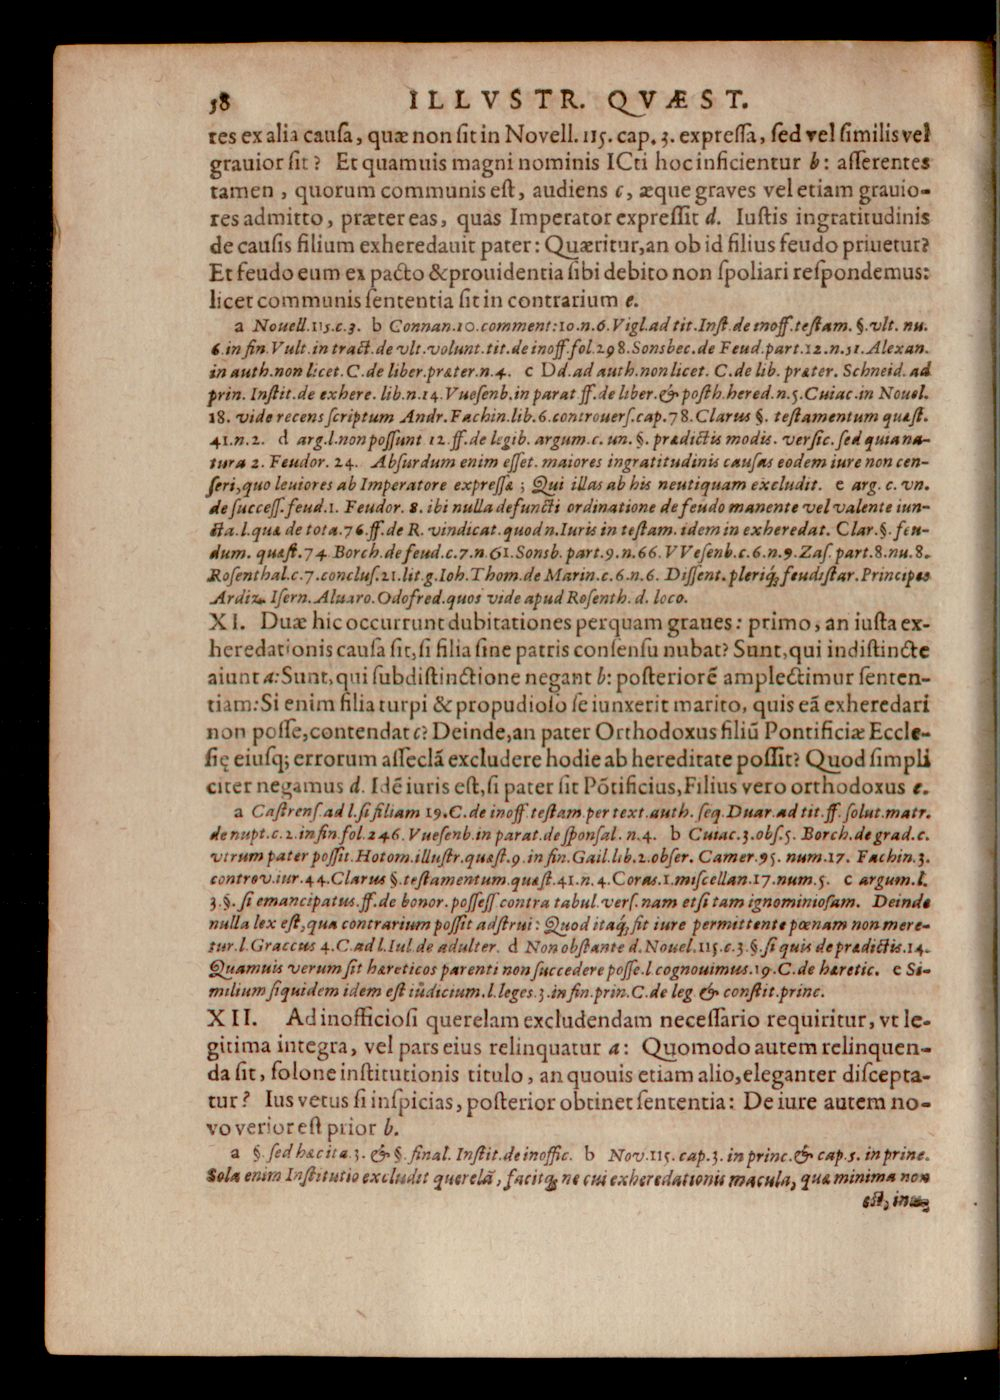 38 ILLVSTR. QVÆST.
res ex alia cauſa, quæ non ſit in Novell. 115. cap. 3. expreſſa, ſed vel ſimilis vel
grauior ſit? Et quamuis magni nominis ICti hoc inficientur b: aſſerentes
tamen, quorum communis eſt, audiens c, æque graves vel etiam grauio-
res admitto, præter eas, quas Imperator expreſſit d. Iuſtis ingratitudinis
de cauſis filium exheredauit pater: Quæritur, an ob id filius feudo priuetur?
Et feudo eum ex pacto & prouidentia ſibi debito non ſpoliari reſpondemus:
licet communis ſententia ſit in contrarium e.
a Nouell. 115. c. 3. b Connan. 10. comment: 10. n. 6. Vigl. ad tit. Inſt. de inoff. teſtam. §. vlt. nu.
6. in fin. Vult. in tract. de vlt. volunt. tit. de inoff. fol. 298. Sonsbec. de Feud. part. 12. n. 51. Alexan.
in auth. non licet. C. de liber. præter. n. 4. c Dd. ad auth. non licet. C. de lib. præter. Schneid. ad
prin. Inſtit. de exhere. lib. n. 14. Vueſenb. in parat. ff. de liber. & poſth. hered. n. 5. Cuiac. in Nouel.
18. vide recens ſcriptum Andr. Fachin. lib. 6. controuerſ. cap. 78. Clarus §. teſtamentum quæſt.
41. n. 2. d arg. l. non poſſunt 12. ff. de legib. argum. c. un. §. prædictis modis. verſic. ſed quia na-
tura 2. Feudor. 24. Abſurdum enim eſſet. maiores ingratitudinis cauſas eodem iure non cen-
ſeri, quo leuiores ab Imperatore expreſſæ; Qui illas ab his neutiquam excludit. e arg. c. vn.
de ſucceſſ. feud. 1. Feudor. 8. ibi nulla defuncti ordinatione de feudo manente vel valente iun-
cta. l. quæ de tota. 76. ff. de R. vindicat. quod n. Iuris in teſtam. idem in exheredat. Clar. §. feu-
dum. quæſt. 74 Borch. de feud. c. 7. n. 61. Sonsb. part. 9. n. 66. VVeſenb. c. 6. n. 9. Zaſ. part. 8. nu. 8.
Roſenthal. c. 7. concluſ. 21. lit. g. Ioh. Thom. de Marin. c. 6. n. 6. Diſſent. pleriq; feudiſtar. Principes
Ardiz. Iſern. Aluaro. Odofred. quos vide apud Roſenth. d. loco.
XI. Duæ hic occurrunt dubitationes perquam graues: primo, an iuſta ex-
heredationis cauſa ſit, ſi filia ſine patris conſenſu nubat? Sunt, qui indiſtincte
aiunt a: Sunt, qui ſubdiſtinctione negant b: poſteriorẽ amplectimur ſenten-
tiam: Si enim filia turpi & propudioſo ſe iunxerit marito, quis eã exheredari
non poſſe, contendat c? Deinde, an pater Orthodoxus filiũ Pontificiæ Eccle-
ſię eiuſq; errorum aſſeclã excludere hodie ab hereditate poſſit? Quod ſimpli
citer negamus d. Idẽ iuris eſt, ſi pater ſit Põtificius, Filius vero orthodoxus e.
a Caſtrenſ. ad l. ſi filiam 19. C. de inoff. teſtam. per text. auth. ſeq. Duar. ad tit. ff. ſolut. matr.
de nupt. c. 2. in fin. fol. 246. Vueſenb. in parat. de ſponſal. n. 4. b Cuiac. 3. obſ. 5. Borch. de grad. c.
vtrum pater poſſit. Hotom. illuſtr. quæſt. 9. in fin. Gail. lib. 2. obſer. Camer. 95. num. 17. Fachin. 3.
controv. iur. 44. Clarus §. teſtamentum. quæſt. 41. n. 4. Coras. 1. miſcellan. 17. num. 5. c argum. l.
3. §. ſi emancipatus. ff. de bonor. poſſeſſ. contra tabul. verſ. nam etſi tam ignominioſam. Deinde
nulla lex eſt, qua contrarium poſſit adſtrui: Quod itaq; fit iure permittente pœnam non mere-
tur. l. Graccus 4. C. ad l. Iul. de adulter. d Non obſtante d. Nouel. 115. c. 3. §. ſi quis de prædictis. 14.
Quamuis verum ſit hæreticos parenti non ſuccedere poſſe. l. cognouimus. 19. C. de hæretic. e Si-
milium ſiquidem idem eſt iudicium. l. leges. 3. in fin. prin. C. de leg. & conſtit. princ.
XII. Ad inofficioſi querelam excludendam neceſſario requiritur, vt le-
gitima integra, vel pars eius relinquatur a: Quomodo autem relinquen-
da ſit, ſolone inſtitutionis titulo, an quouis etiam alio, eleganter diſcepta-
tur? Ius vetus ſi inſpicias, poſterior obtinet ſententia: De iure autem no-
vo verior eſt prior b.
a §. ſed hæc ita. 3. & §. final. Inſtit. de inoffic. b Nov. 115. cap. 3. in princ. & cap. 5. in princ.
Sola enim Inſtitutio excludit querelã, facitq; ne cui exheredationis macula, quæ minima non
eſt, inu-